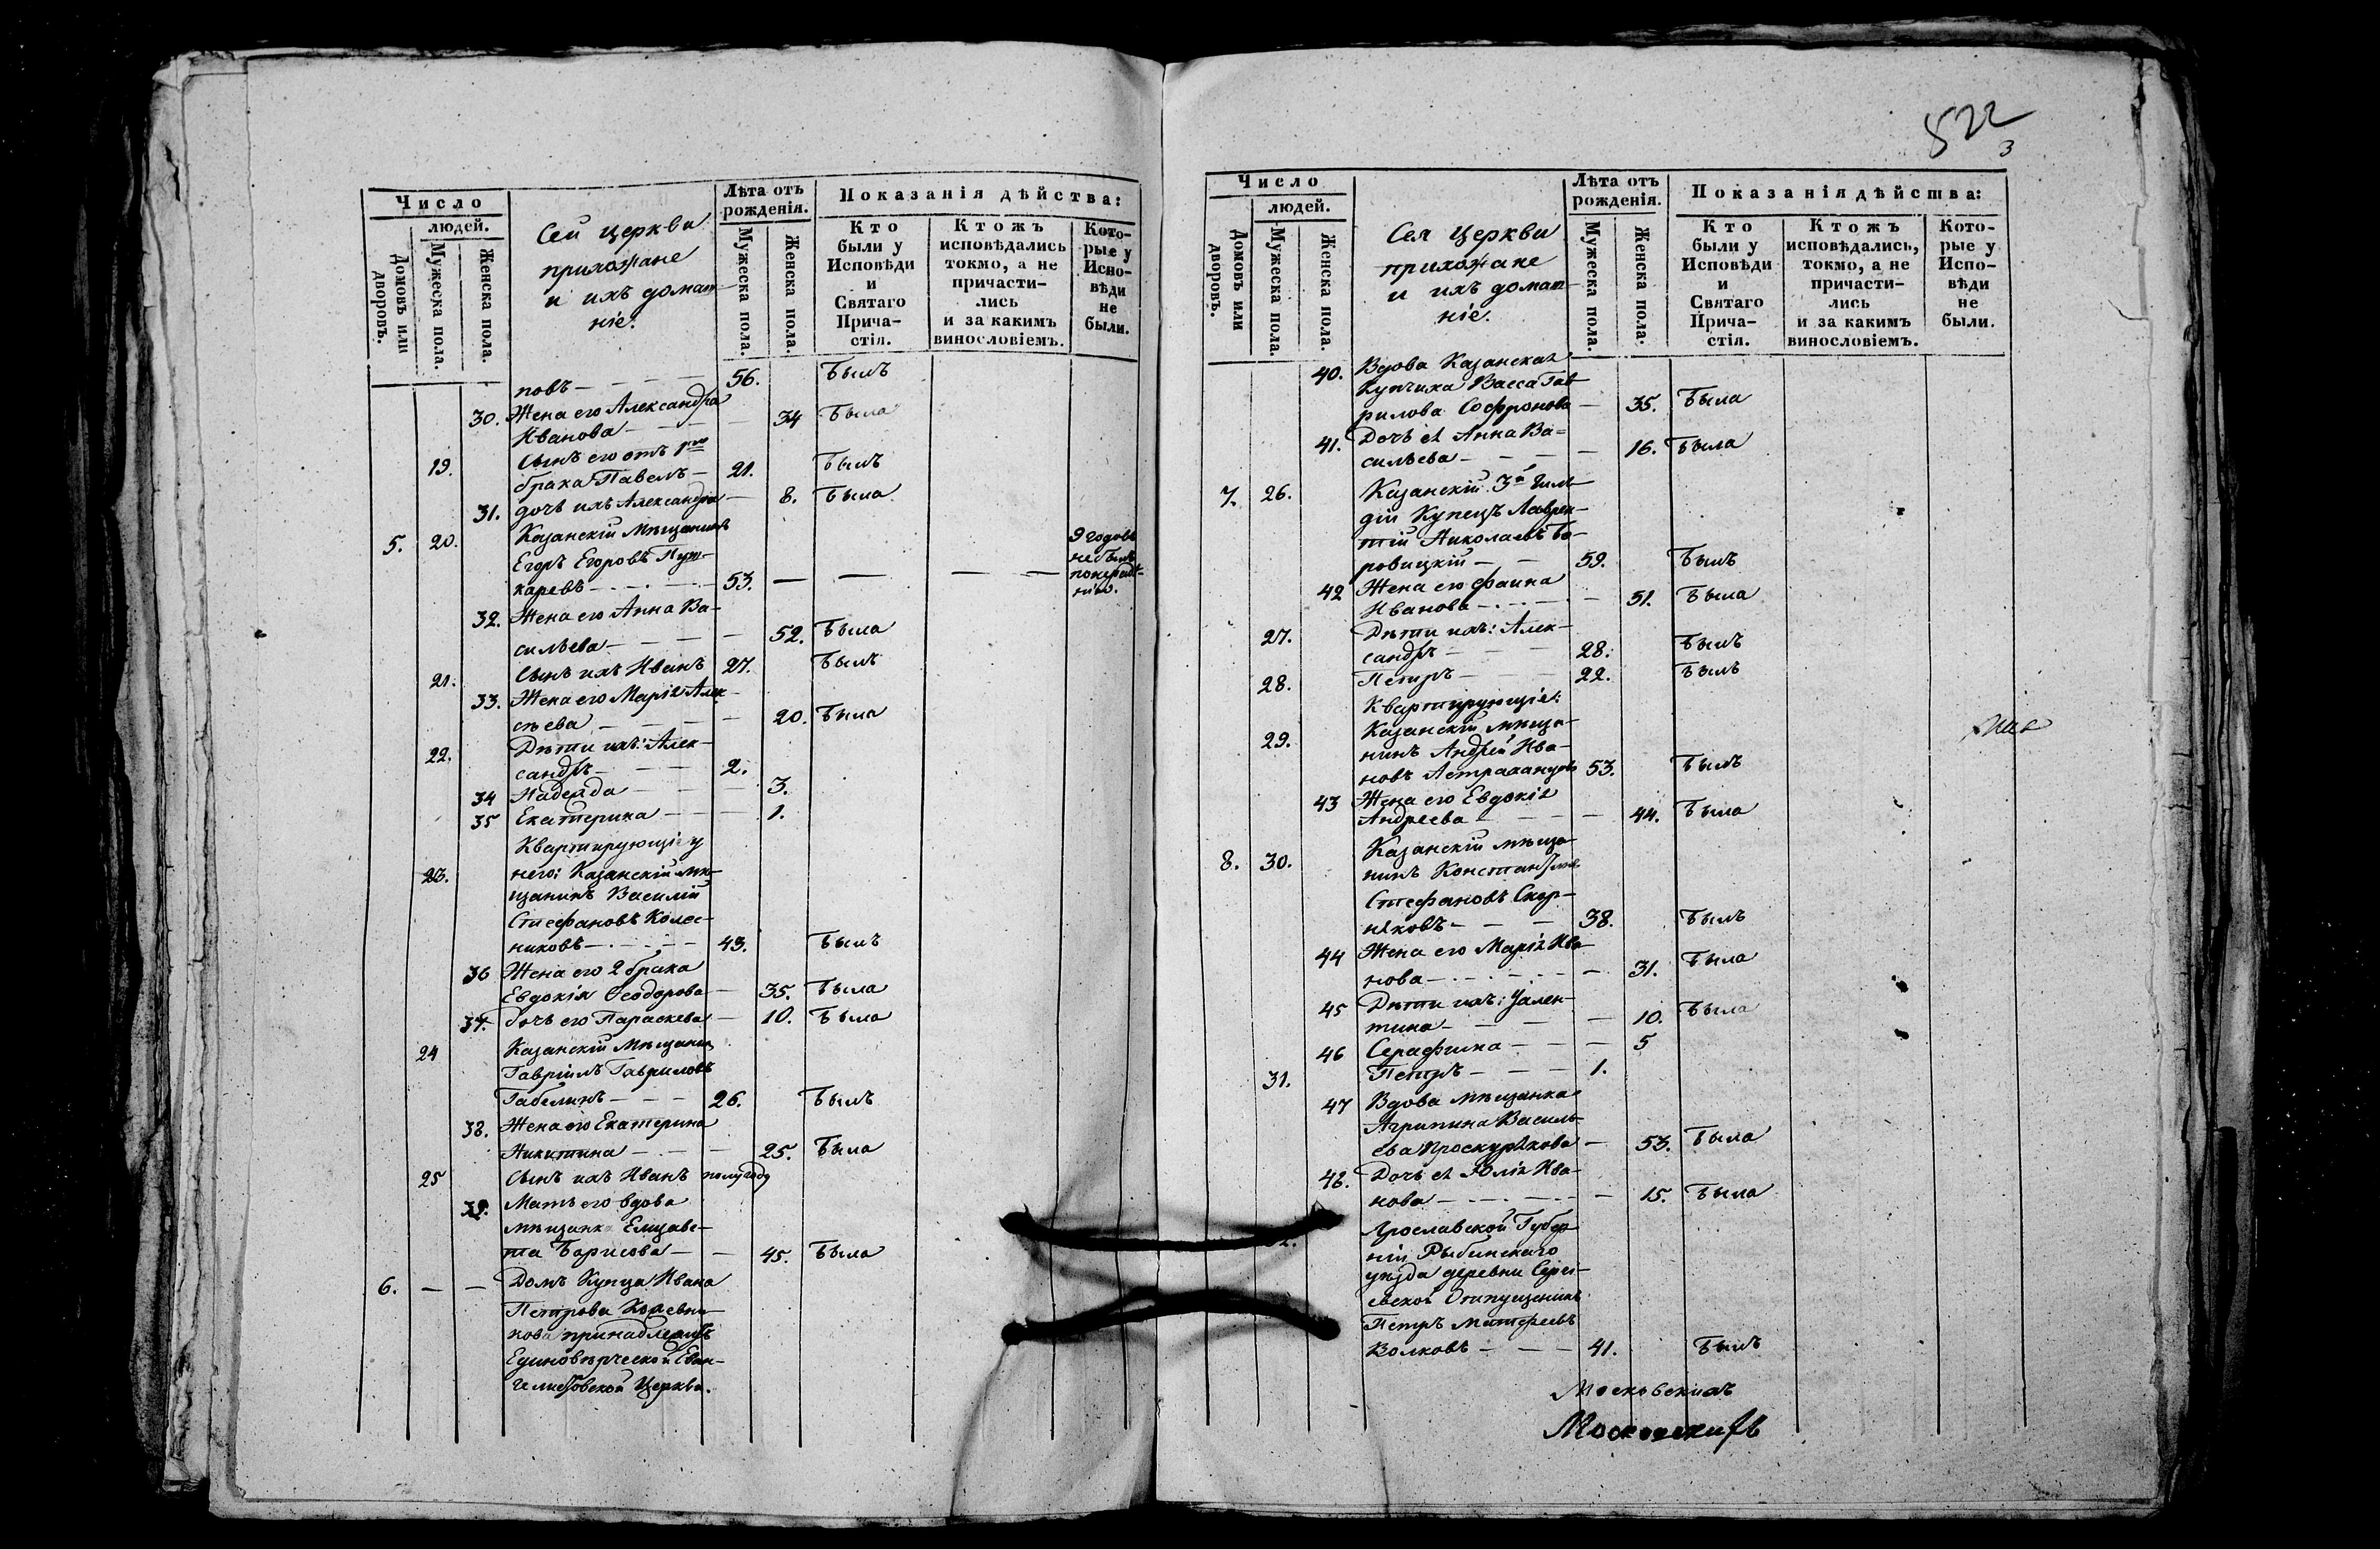 Число
людей.
Домовъ или дворовъ.
Мужеска пола.
Женска пола.
Сей церкви
прихожане
и ихъ домаш-
ніе.
Лѣта отъ
рожденія.
Мужеска пола.
Женска пола.
Показанія дѣйства:
Кто
были у
Исповѣди
и
Святаго
Прича-
стія.
Ктожъ
исповѣдались
токмо, а не
причасти-
лись
и за какимъ
винословіемъ.
Кото-
рые у
Испо-
вѣди
не
были.
повъ — 56. Былъ
30. Жена его Александра
Иванова — 34 Была
19. Сынъ его отъ 1го
брака Павелъ — 21. Былъ
31. дочь ихъ Александра — 8. Была
5. 20. Казанскій Мѣщанинъ
Егоръ Егоровъ Пуш-
каревъ — 53. — — —
9 годовъ
не былъ
по нерадѣ-
нію.
32. Жена его Анна Ва-
сильева — 52. Была
21. Сынъ ихъ Иванъ 27. Былъ
33. Жена его Марія Алек-
сѣева — 20. Была
22. Дѣти ихъ: Алек-
сандръ — 2.
34 Надежда — 3.
35 Екатерина — 1.
Квартирующіе у
23. него: Казанскій мѣ-
щанинъ Василій
Стефановъ Колес-
никовъ — 43. Былъ
36 Жена его 2 брака
Евдокія Ѳеодорова — 35. Была
37. дочь его Параскева — 10. Была
24 Казанскій Мѣщанинъ
Гавріилъ Гавриловъ
Габелинъ — 26. Былъ
38. Жена его Екатерина
Никитина — 25. Была
25 Сынъ ихъ Иванъ полугоду
39. Мать его вдова
мѣщанка Елизаве-
та Борисова — 45. Была
6. — — Домъ Купца Ивана
Петрова
кова принадлежитъ
Единовѣрческой Еван-
гелистовской Церкви.
522
3
Число
людей.
Домовъ или дворовъ.
Мужеска пола.
Женска пола.
Сея церкви
прихожане
и ихъ домаш-
ніе.
Лѣта отъ
рожденія.
Мужеска пола.
Женска пола.
Показанія дѣйства:
Кто
были у
Исповѣди
и
Святаго
Прича-
стія.
Ктожъ
исповѣдались,
токмо, а не
причасти-
лись
и за какимъ
винословіемъ.
Кото-
рые у
Испо-
вѣди
не
были.
40. Вдова Казанская
Купчиха Васса Гав-
рилова Софронова — 35. Была
41. Дочь ея Анна Ва-
сильева — 16. Была
7. 26. Казанскій 3й Гиль-
діи Купецъ Лаврен-
тій Николаевъ Бо-
ровицкій — 59. Былъ
42 Жена его Фаина
Иванова — 51. Была
27. Дѣти ихъ: Алек-
сандръ — 28. Былъ
28. Петръ — 22. Былъ
Квартирующіе:
29. Казанскій мѣща-
нинъ Андрей Ива-
новъ Астраханцовъ 53. Былъ
43 Жена его Евдокія
Андреева — 44. Была
8. 30. Казанскій мѣща-
нинъ Константинъ
Стефановъ Скор-
няковъ — 38. Былъ
44 Жена его Марія Ива-
нова — 31. Была
45 Дѣти ихъ: Уален-
тина — 10. Была
46 Серафима — 5
31. Петръ — 1.
47 Вдова мѣщанка
Агрипина Василь-
ева Проскурякова — 53. Была
48. Дочь ея Юлія Ива-
нова — 15. Была
Ярославской Губер-
32. ніи Рыбинскаго
уѣзда деревни Серги-
евской Отпущенникъ
Петръ Матфеевъ
Волковъ — 41. Былъ